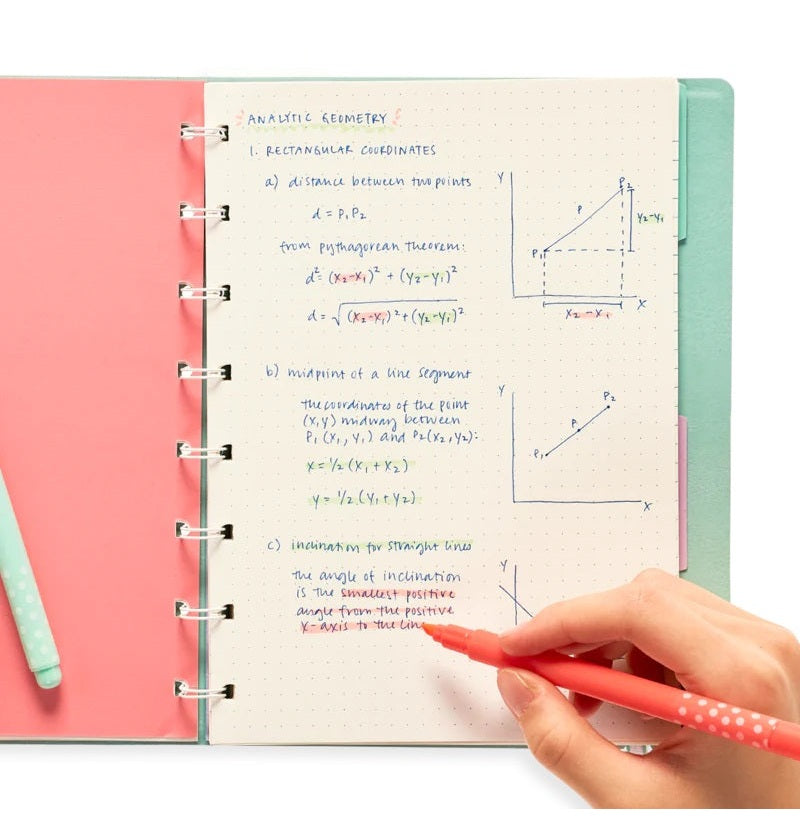 ANALYTIC GEOMETRY
1. RECTANGULAR COORDINATES
a) distance between two points
d = P₁ P₂
from pythagorean theorem:
d² = (x₂-x₁)² + (y₂-y₁)²
d = √(x₂-x₁)² + (y₂-y₁)²
Y
P₂
P
y₂-y₁
P₁
X
x₂ - x₁
b) midpoint of a line segment
the coordinates of the point
(x,y) midway between
P₁ (x₁, y₁) and P₂(x₂, y₂):
x = ½ (x₁ + x₂)
y = ½ (y₁ + y₂)
Y
P₂
P
P₁
X
c) inclination for straight lines
the angle of inclination
is the smallest positive
angle from the positive
x-axis to the line
Y